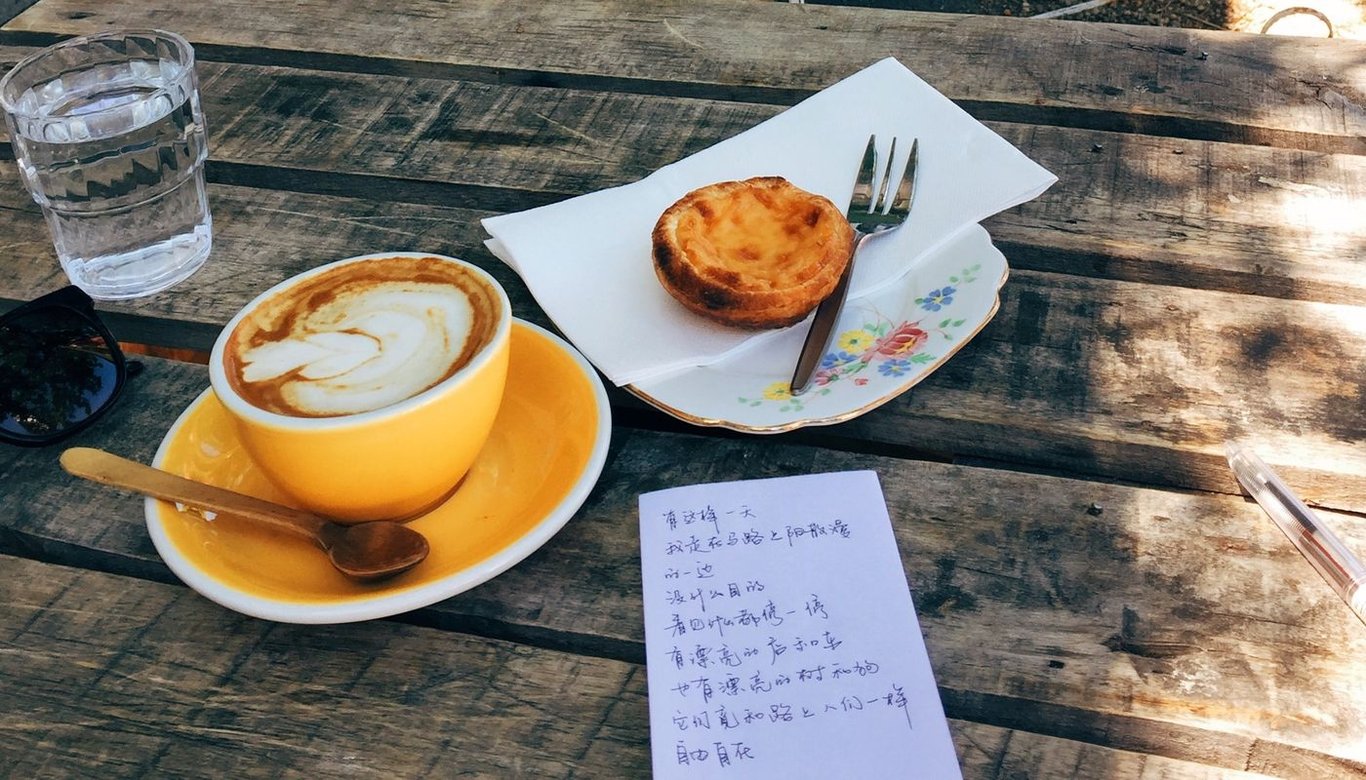 有这样一天
我走在马路上阳散漫
的一边
没什么目的
看见什么都停一停
有漂亮的店和车
也有漂亮的树和狗
它们竟和路上人们一样
自由自在